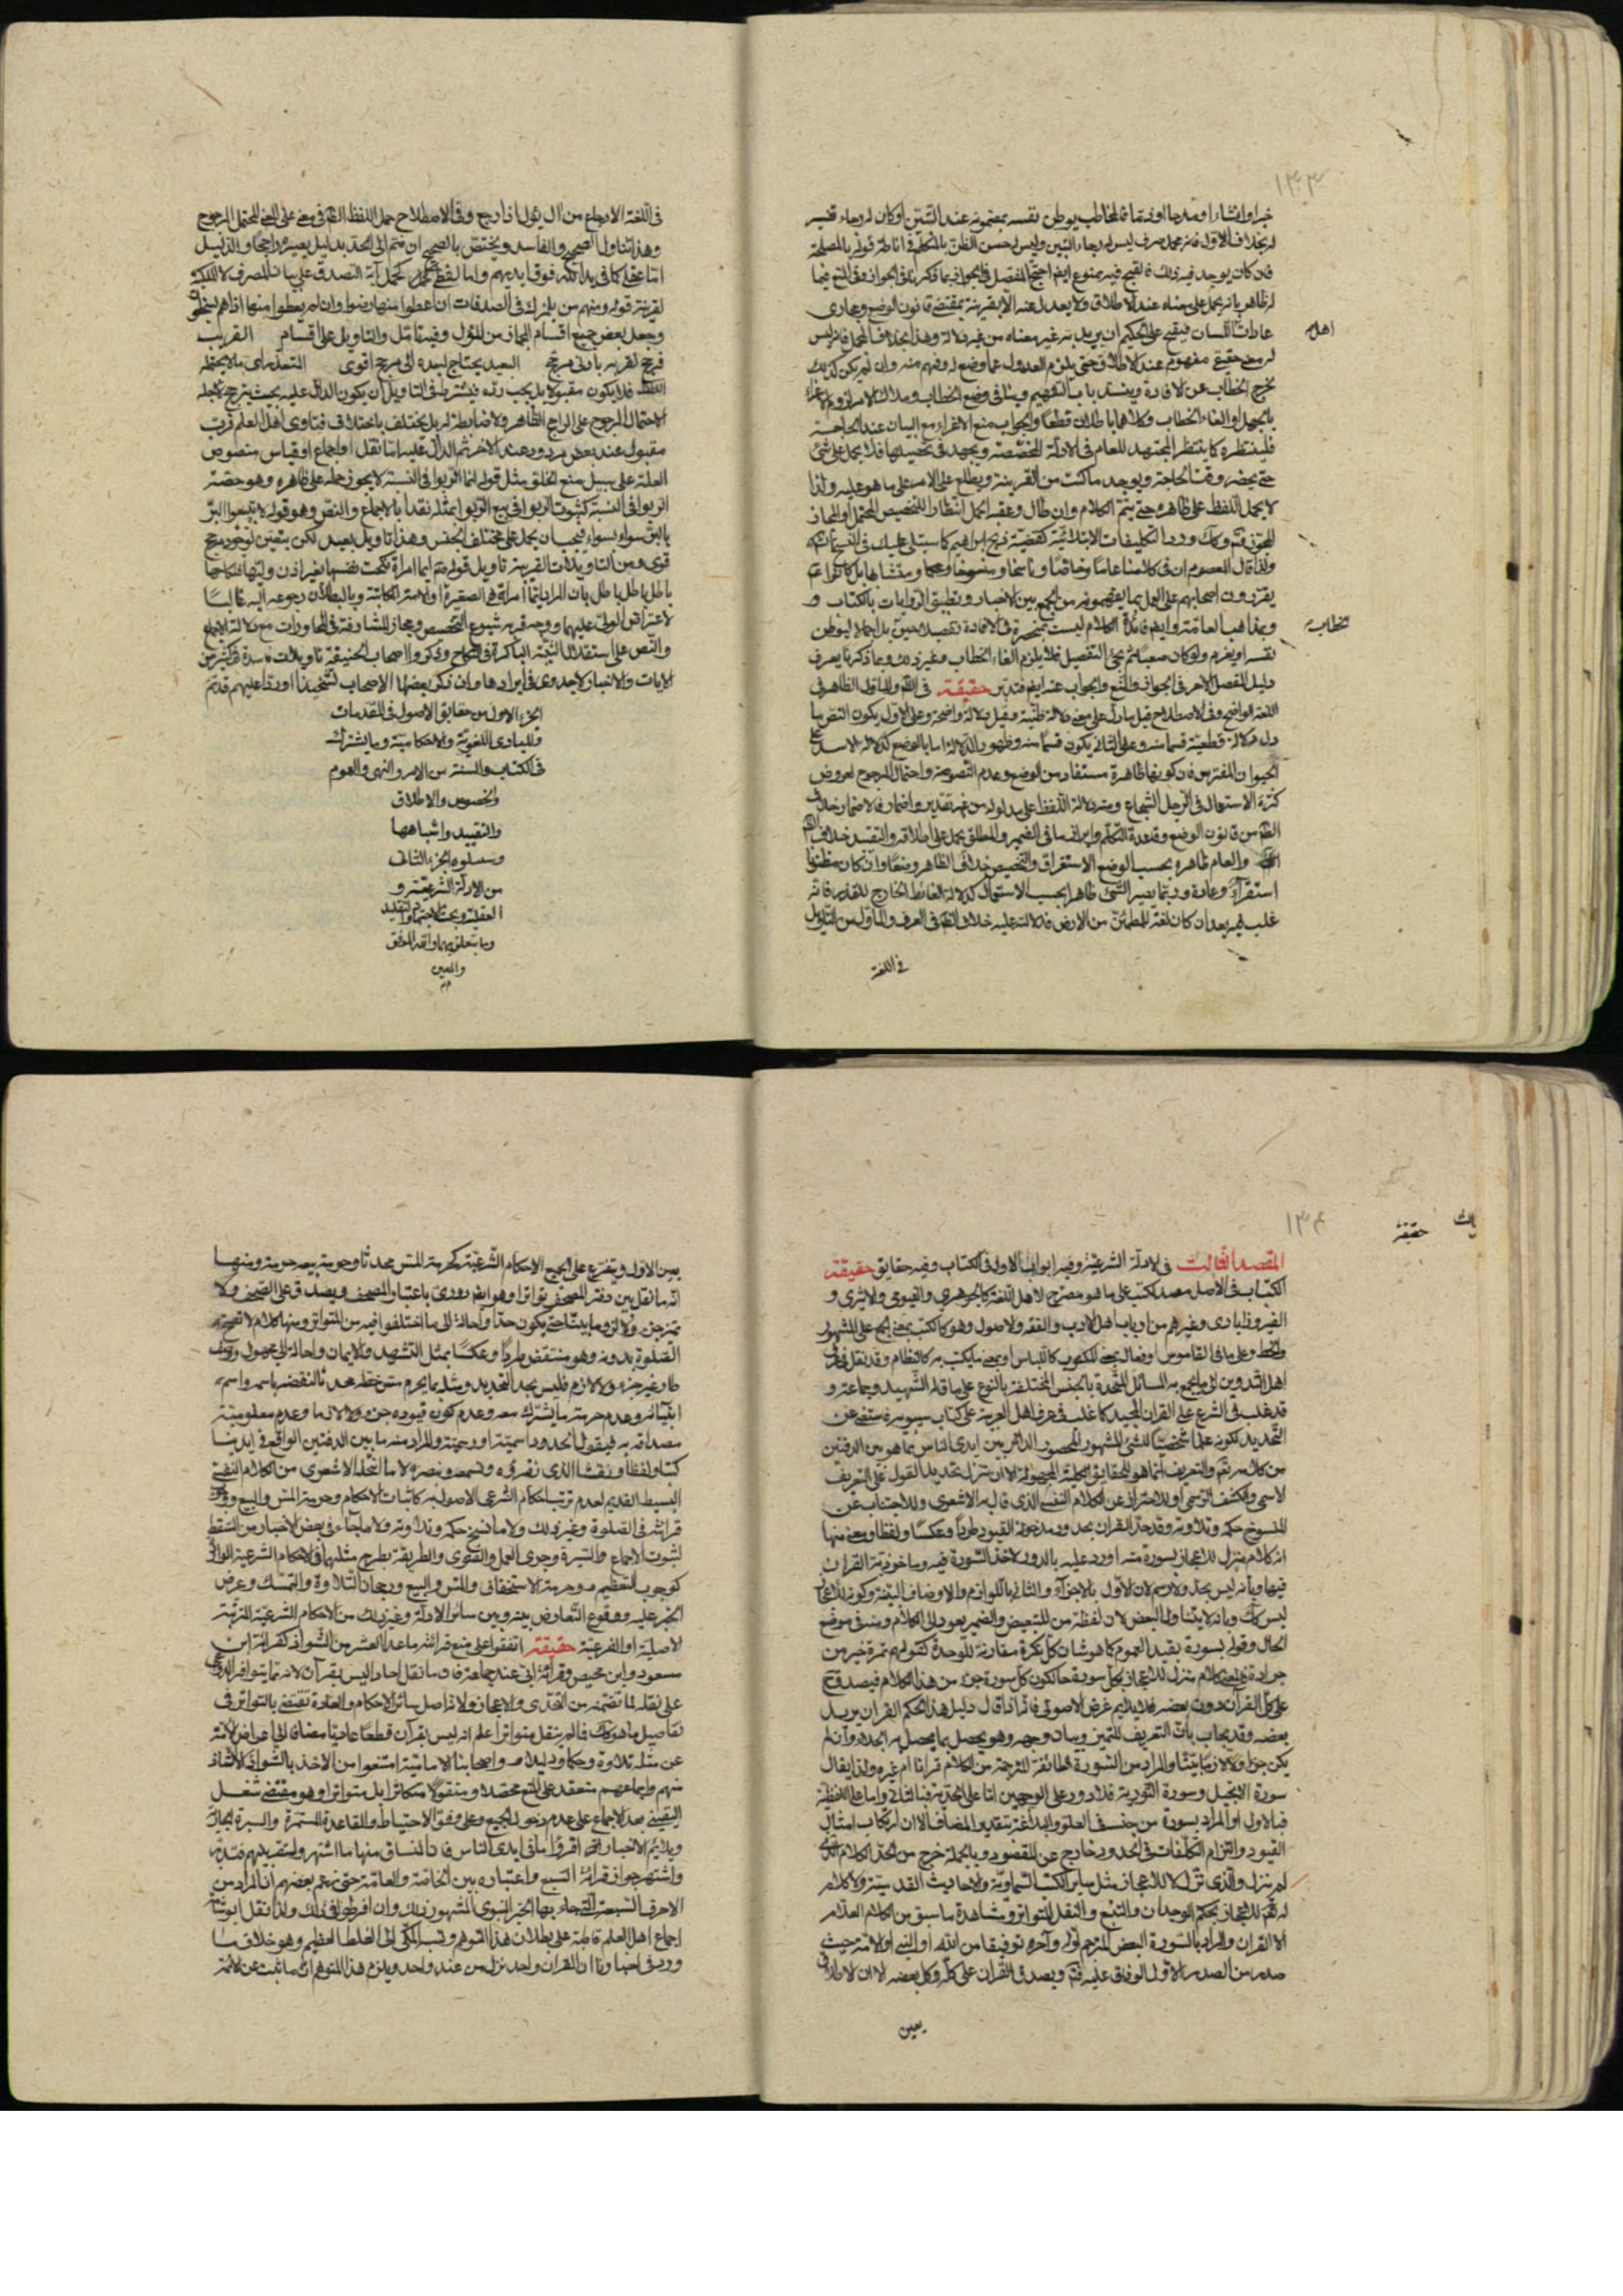 ١٣٣
خبرا وانشاء او مدحا او ذما فالمخاطب يوطن نفسه بمضمونه عند التبين او كان له رجاء تفسير
له بخلاف الاول فانه مجمل صرف ليس له رجاء التبين وليس له حسن الظن بالمتكلم في اناطة قوله بالمصلحة
فان كان يوجد فيه ذلك فالقبح فيه ممنوع ايضا احتج المفصل في الجواز بما ذكرنا في الجواز وفي المنع فيما
له ظاهر بانه يحمل على معناه عند الاطلاق ولا يعدل عنه الا بقرينة بمقتضى قانون الوضع ومجاري
عادات اللسان فيقبح على الحكيم ان يريد به غير معناه من غير دلالة وهذا بخلاف المجمل فانه ليس
اهل
له معنى حقيقي مفهوم عند الاطلاق حتى يلزم العدول عما وضع له وفهم منه وان لم يكن كذلك
يخرج الخطاب عن الافادة وينسد باب التفهيم وينافي وضع الخطاب ومدار الامر لزوم الاغراء
بالجهل او الغاء الخطاب وكلاهما باطلان قطعا والجواب منع الاغراء مع البيان عند الحاجة
فلينتظره كما ينتظر المجتهد للعام في الادلة المخصصة ويجتهد في تحصيلها فلا يحمل على شئ
حتى يحضر وقت الحاجة ويوجد ما كنت من القرينة ويطلع على الامر على ما هو عليه ولذا
لا يحمل اللفظ على ظاهره حتى يتم الكلام وان طال وعقبه الجمل انتظارا للتخصيص المحتمل او المجاز
ولذا قال المعصوم ان في كلامنا عاما وخاصا وناسخا ومنسوخا ومحكما ومتشابها بل كانوا
يقررون اصحابهم على العمل بما يفهمونه من الجمع بين الاخبار وتطبيق الروايات بالكتاب و
خطاب
ومذاهب العامة وايضا فائدة الكلام ليست منحصرة في الافادة تفصيلا حين بل اجمالا ليوطن
نفسه او يغرم ولو كان صعبا ثم يجئ التفصيل فلا يلزم الغاء الخطاب وغير ذلك وبما ذكرنا يعرف
دليل المفصل الاخر في الجواز والمنع والجواب عنه ايضا فتدبر حقيقة في الظاهر والماول الظاهر في
اللغة الواضح وفي الاصطلاح قيل ما دل على معنى دلالة ظنية وقيل دلالة واضحة وعلى الاول يكون النص ما
دل دلالة قطعية قسما منه وعلى الثاني يكون قسما منه وظهور الدلالة اما بالوضع كدلالة الاسد على
الحيوان المفترس فان كونها ظاهرة مستفاد من الوضع وعدم النصوصية واحتمال المرجوح لعروض
كثرة الاستعمال في الرجل الشجاع ومنه دلالة اللفظ على مدلوله من غير تقدير واضمار فالاضمار خلاف
الظاهر من قانون الوضع وقاعدة التكلم وابراز ما في الضمير والمطلق يحمل على اطلاقه والتقييد خلاف
والعام ظاهره بحسب الوضع الاستغراق والتخصيص خلاف الظاهر وضعا وان كان مظنونا
استقراء وعادة وربما يصير الشئ ظاهرا بحسب الاستعمال كدلالة الغائط الخارج للقذر فانه
غلب فيه بعد ان كان لغة للمطمئن من الارض فدلالته عليه خلاف الظاهر في العرف والماول من التاويل
في اللغة
في اللغة الارجاع من آل يؤل اذا رجع وفي الاصطلاح حمل اللفظ الظاهر في معنى على المعنى المحتمل المرجوح
وهذا يتناول الصحيح والفاسد ويختص بالصحيح ان ضم الى الحد بدليل يصيره راجحا والدليل
اما عقلي كما في يد الله فوق ايديهم واما لفظي كحمل آية التصدق على بيان المصرف لا الملك
لقرينة قوله ومنهم من يلمزك في الصدقات ان اعطوا منها رضوا وان لم يعطوا منها اذا هم يسخطون
وجعل بعض جميع اقسام المجاز من المؤول وفيه تامل والتاويل على اقسام القريب
فرجح لقربه بادنى مرجح البعيد يحتاج لبعده الى مرجح اقوى التعذر اي ما لا يحتمله
اللفظ فلا يكون مقبولا بل يجب رده فيشترط في التاويل ان يكون الدال عليه بحيث يترجح بجعله
الاحتمال المرجوح على الراجح الظاهر ولا ضابطة له بل يختلف باختلاف فتاوى اهل العلم فرب
مقبول عند بعض مردود عند الاخر ثم الدال عليه اما نقل او اجماع او قياس منصوص
العلة على سبيل منع الخلو مثل قوله انما الربوا في النسية لا يجوز حمله على ظاهره وهو حصة
الربوا في النسية كثبوت الربوا في بيع الربوي بمثله نقدا بالاجماع والنص وهو قوله لا تبيعوا البر
بالبر سواء بسواء فيجب ان يحمل على مختلف الجنس وهذا تاويل بعيد لكن يتعين لوجود مرجح
قوى ومن التاويلات القريبة تاويل قوله صم ايما امراة نكحت نفسها بغير اذن وليها فنكاحها
باطل باطل باطل بان المراد بايما امراة هي الصغيرة او الامة او المكاتبة وبالبطلان رجوعه اليه غالبا
لاعتراض الولي عليهما ووجه قربه شيوع التخصيص ومجاز المشارفة في المحاورات مع دلالة الاجماع
والنص على استقلال الثيبة الباكرة في النكاح وذكروا اصحاب الحنيفة تاويلات فاسدة في كثير من
الايات والاخبار لا جدوى في ايرادها وان ذكر بعضها الاصحاب تشحيذا او ردا عليهم قد تم
الجزء الاول من حقايق الاصول في المقدمات
والمبادي اللغوية والاحكامية وما يشترك
في الكتاب والسنة من الامر والنهى والعموم
والخصوص والاطلاق
والتقييد واشباهها
وسيتلوه الجزء الثاني
من الادلة الشرعية و
العقلية وبحث الاجتهاد والتقليد
وما يتعلق بهما والله الموفق
والمعين
١٣٤
حقيقة
المقصد الثالث في الادلة الشرعية وفيه ابواب الاول في الكتاب وفيه حقايق حقيقة
الكتاب في الاصل مصدر كتب على ما هو مصرح لاهل اللغة كالجوهري والفيومي والاثيري و
الفيروزابادي وغيرهم من ارباب اهل الادب والفقه والاصول وهو كالكتب بمعنى الجمع على المشهور
والخط وعلى ما في القاموس او فعال بمعنى المكتوب كاللباس او بمعنى ما يكتب به كالنظام وقد نقل في عرف
اهل التدوين الى ما يجمع به المسائل المتحدة بالجنس المختلفة بالنوع على ما قاله الشهيد وجماعة و
قد غلب في الشرع على القران المجيد كما غلب في عرف اهل العربية على كتاب سيبويه مستغنى عن
التحديد لكونه علما شخصيا للشئ المشهور المحصور الدائر بين ايدي الناس بما هو بين الدفتين
من كلام ربهم والتعريف انما هو للحقايق الكلية المجهولة الا ان تنزل تحديد القول على التعريف
الاسمي والكشف الرسمي او للاحتراز عن الكلام النفسي الذي قال به الاشعري وللاجتناب عن
المنسوخ حكمه وتلاوته وقد حد القران بحدود مدخولة القيود طردا وعكسا ولفظا ومعنى منها
انه كلام منزل للاعجاز بسورة منه اورد عليه بالدور لاخذ السورة فيه وماخوذية القران
فيها وبانه ليس بحد ولا رسم لان الاول بالاجزاء والثاني باللوازم والاوصاف البينة وكونه للاعجاز
ليس كك وبانه لا يتناول البعض لان لفظة من للتبعيض والضمير يعود الى الكلام ومنه في موضع
الحال وقوله بسورة يفيد العموم كما هو شان كل نكرة مقارنة للوحدة كقولهم تمرة خير من
جرادة فمعنى كلام منزل للاعجاز بكل سورة حالكون كل سورة جزء من هذا الكلام فيصدق ح
على كل القرآن دون بعضه فلا يلايم غرض الاصولي فانه اذا قال دليل هذا الحكم القران يريد
بعضه وقد يجاب بان التعريف للتميز وبيان وجهه وهو يحصل بما يحصل به الحد وان لم
يكن جزءا ولا لازما بينا والمراد من السورة الطائفة المترجمة من الكلام قرانا ام غيره ولذا يقال
سورة الانجيل وسورة التورية فلا دور على الوجهين اما على الحدية فبالثاني واما على اللفظية
فبالاول او المراد بسورة من جنسه في العلو والبلاغة بتقدير المضاف الا ان ارتكاب امثال
القيود والتزام التكلفات في الحدود خارج عن المقصود وبالجملة خرج من الحد الكلام الذي
لم ينزل والذي نزل لا للاعجاز مثل ساير الكتب السماوية والاحاديث القدسية والكلام
له للاعجاز بحكم الوجدان والتتبع والنقل المتواتر ومشاهدة ما سبق من الكلام العلام
الا القران والمراد بالسورة البعض المترجم اوله وآخره توفيقا من الله او النبي او الائمة حيث
صدر من الصدر الاول الوفاق عليه فتم ويصدق القران على كله وكل بعضه الا ان الاطلاق
يعين
يعين الاول ويتفرع على الجميع الاحكام الشرعية كحرمة المس محدثا وحرمة بيعه حرمة ومنها
انه ما نقل بين دفتي المصحف تواترا وهو ايضا دوري باعتبار المصحف ويصدق على الصحف ولا
الصلوة بدونه وهو منتقض طردا وعكسا بمثل التشهد والايمان واحالة الى مجهول
طا وغير جزء ولا لازم فليس بحد التحديد ومثله بما يحرم مس خطه محدثا لنقضه باسم واسم
انبيائه وعدم حرمة ما يشترك معه وعدم كون قيوده جزء ولا لازما وعدم معلومية
مصداقه به فيقول الحدود اسمية او رسمية والمراد منه ما بين الدفتين الواقع في ايدينا
كتبا ولفظا ونقشا الذي نقرؤه ونسمعه ونبصره لا ما اتخذه الاشعري من الكلام النفسي
البسيط القديم لعدم ترتب احكام الشرعي الاصولي به كاثبات الاحكام وحرمة المس والبيع
قرائته في الصلوة وغير ذلك ولا ما نسخ حكمه وتلاوته ولا ما جاء في بعض الاخبار من السقط
لثبوت الاجماع والسيرة وجرى العمل والفتوى والطريقة بطرح مثلها في الاحكام الشرعية
كوجوب التعظيم وحرمة الاستخفاف والمس والبيع ورجحان التلاوة والتمسك وعرض
الخبر عليه ووقوع التعارض بينه وبين سائر الادلة وغير ذلك من الاحكام الشرعية المترتبة
الاصلية او الفرعية حقيقة اتفقوا على منع قرائة ما عدا العشر من الشواذ كقرائة ابن
مسعود وابن محيص وقرائة ابي عند جماعة فان ما نقل احادا ليس بقرآن لانه مما يتوافر الدواعي
على نقله لما تضمنه من التحدي والاعجاز ولانه اصل سائر الاحكام والعادة تقتضي بالتواتر في
تفاصيل ما هو كك فما لم ينقل متواترا علم انه ليس بقرآن قطعا عاديا مضافا الى اعراض الائمة
عن مثله تلاوة وحكما ودليلا واصحابنا الامامية امتنعوا من الاخذ بالشواذ
منهم واجماعهم منعقد على المنع محصلا ومنقولا متكاثرا بل متواترا وهو مقتضى شغل
اليقيني بعد الاجماع على عدم دخول الجميع وعلى وفق الاحتياط والقاعدة المستمرة والسيرة
ويلايم الاخبار اقرؤا ما في ايدي الناس فان المنساق منها ما اشتهر
واشتهر جواز قرائة السبع واعتباره بين الخاصة والعامة حتى زعم بعضهم ان المراد من
الاحرف السبعة التي جاء بها الخبر النبوي المشهور ذلك وان افرطوا في ذلك ولذا نقل ابوشامة
اجماع اهل العلم قاطبة على بطلان هذا التوهم ونسب المكي الى الغلط العظيم وهو خلاف ما
ورد في اخبارنا ان القران واحد نزل من عند واحد ويلزم هذا المتوهم ان ما ثبت عن الائمة